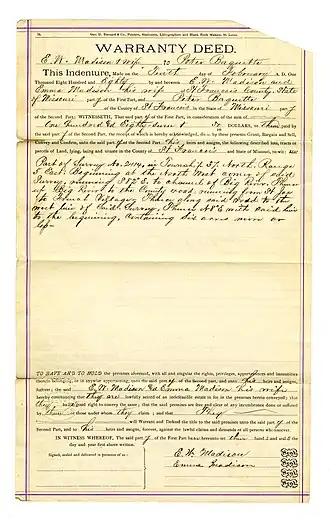 WARRANTY DEED.
E. W. Madison & wife TO Peter Baguette
This Indenture, Made on the Tenth day of February A. D. One
Thousand Eight Hundred and Eighty by and between E. W. Madison and
Emma Madison his wife St Francois County, State
of Missouri part of the First Part, and Peter Baguette
of the County of St Francois in the State of Missouri part
of the Second Part: WITNESSETH, That said part of the First Part, in consideration of the sum of
One Hundred & Eighty DOLLARS, to them paid by
the said part of the Second Part, the receipt of which is hereby acknowledged, do by these presents, Grant, Bargain and Sell,
Convey and Confirm, unto the said part of the Second Part, his heirs and assigns, the following described lots, tracts or
parcels of Land, lying, being and situate in the County of St Francois and State of Missouri, to-wit:
Part of Survey No. 2114, in Township 37, North, Range
5 East. Beginning at the North West corner of said
Survey, running to channel of Big River, Thence
up Big River to the County road running from
to Thence along said road to the
west line of said Survey, Thence with said line
to the beginning, containing Six acres more or
less
TO HAVE AND TO HOLD the premises aforesaid, with all and singular the rights, privileges, appurtenances and immunities
thereto belonging, or in anywise appertaining, unto the said part of the Second Part, and unto his heirs and assigns,
forever; the said E. W. Madison & Emma Madison his wife
hereby covenanting that they are lawfully seized of an indefeasible estate in fee in the premises herein conveyed; that
they have good right to convey the same; that the said premises are free and clear of any incumbrance done or suffered
by them or those under whom they claim; and that they
will Warrant and Defend the title to the said premises unto the said part of the
Second Part, and to his heirs and assigns, forever, against the lawful claims and demands of all persons whomsoever.
IN WITNESS WHEREOF, The said part of the First Part have hereunto set their hand and seal the
day and year first above written.
Signed, sealed and delivered in presence of us
E. W. Madison
Emma Madison